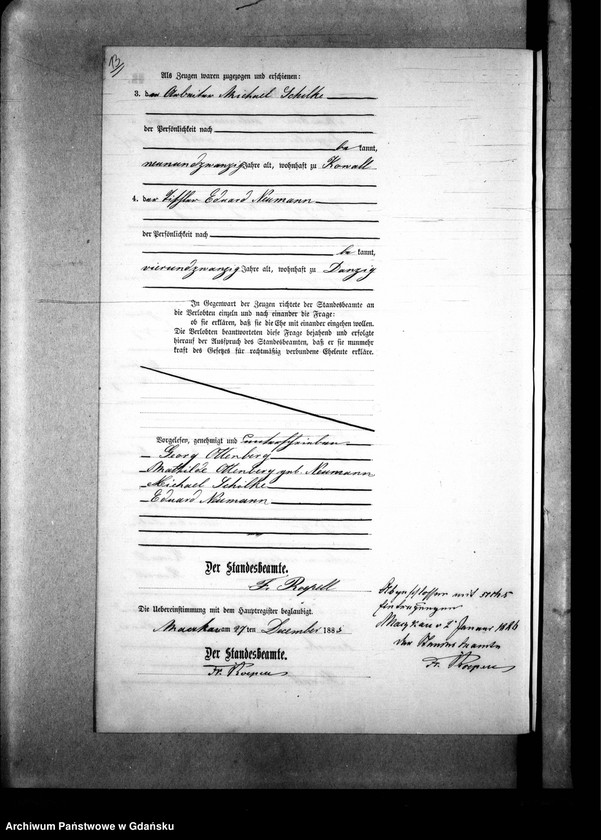 13
Als Zeugen waren zugezogen und erschienen:
3. der Arbeiter Michael Schelke
der Persönlichkeit nach
be kannt,
neunundzwanzig Jahre alt, wohnhaft zu Kowall
4. der Tischler Eduard Neumann
der Persönlichkeit nach
be kannt,
vierundzwanzig Jahre alt, wohnhaft zu Danzig
In Gegenwart der Zeugen richtete der Standesbeamte an
die Verlobten einzeln und nach einander die Frage:
ob sie erklären, daß sie die Ehe mit einander eingehen wollen.
Die Verlobten beantworteten diese Frage bejahend und erfolgte
hierauf der Ausspruch des Standesbeamten, daß er sie nunmehr
kraft des Gesetzes für rechtmäßig verbundene Eheleute erkläre.
Vorgelesen, genehmigt und unterschrieben
Georg Ottenberg
Mathilde Ottenberg geb. Neumann
Michael Schelke
Eduard Neumann
Der Standesbeamte.
Fr.
Die Uebereinstimmung mit dem Hauptregister beglaubigt.
am 27ten Dezember 1885
Der Standesbeamte.
Fr.
Abgeschlossen mit sechs
Eintragungen
2 Januar 1886
Der Standesbeamte
Fr.
Archiwum Państwowe w Gdańsku